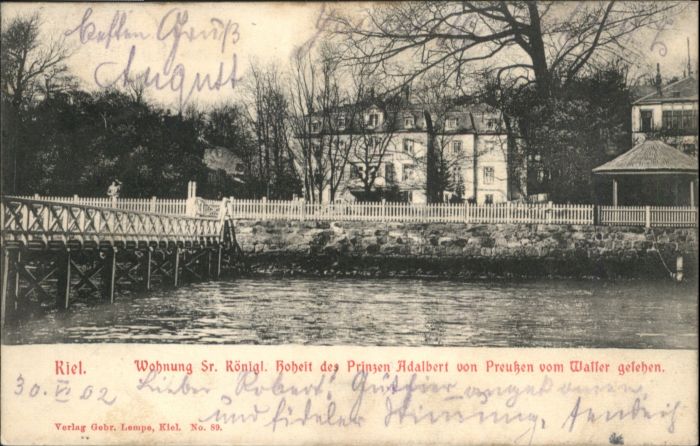 Besten Gruß
August
Kiel. Wohnung Sr. Königl. Hoheit des Prinzen Adalbert von Preußen vom Wasser gesehen.
30. VI 02 Lieber Robert! angekommen,
und fideler Stimmung,
Verlag Gebr. Lempe, Kiel. No. 89.